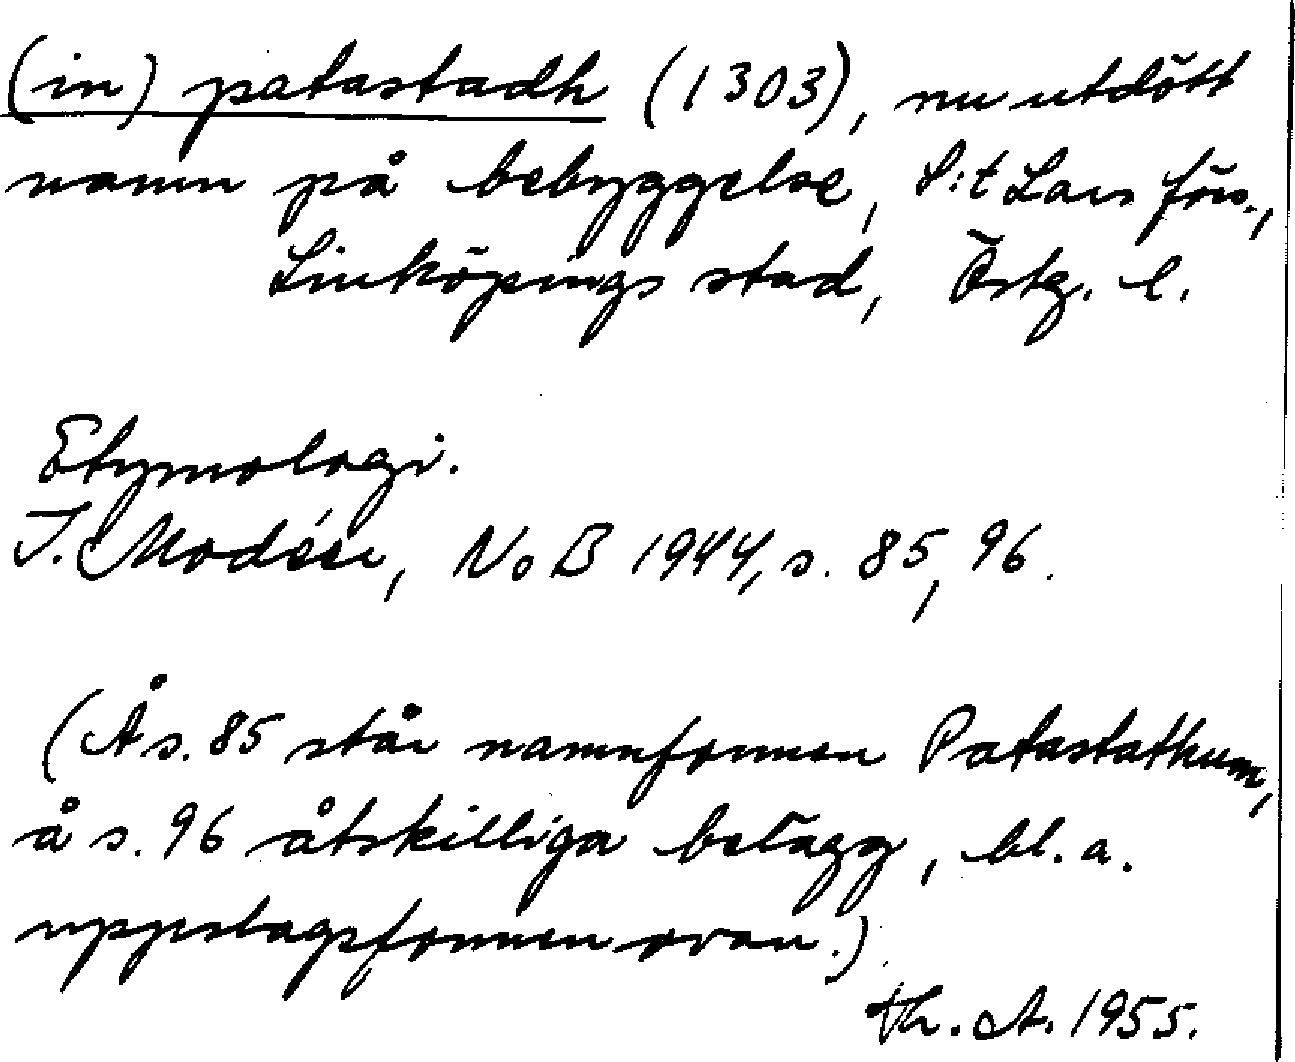 (in) patastadh (1303), nu utdött
namn på bebyggelse, S:t Lars förs.,
Linköpings stad, Östg. l.
Etymologi.
I. Modéer, NoB 1944, s. 85, 96.
(Å s. 85 står namnformen Patastathum,
å s. 96 åtskilliga belägg, bl. a.
uppslagsformen ovan.)
Th. A. 1955.